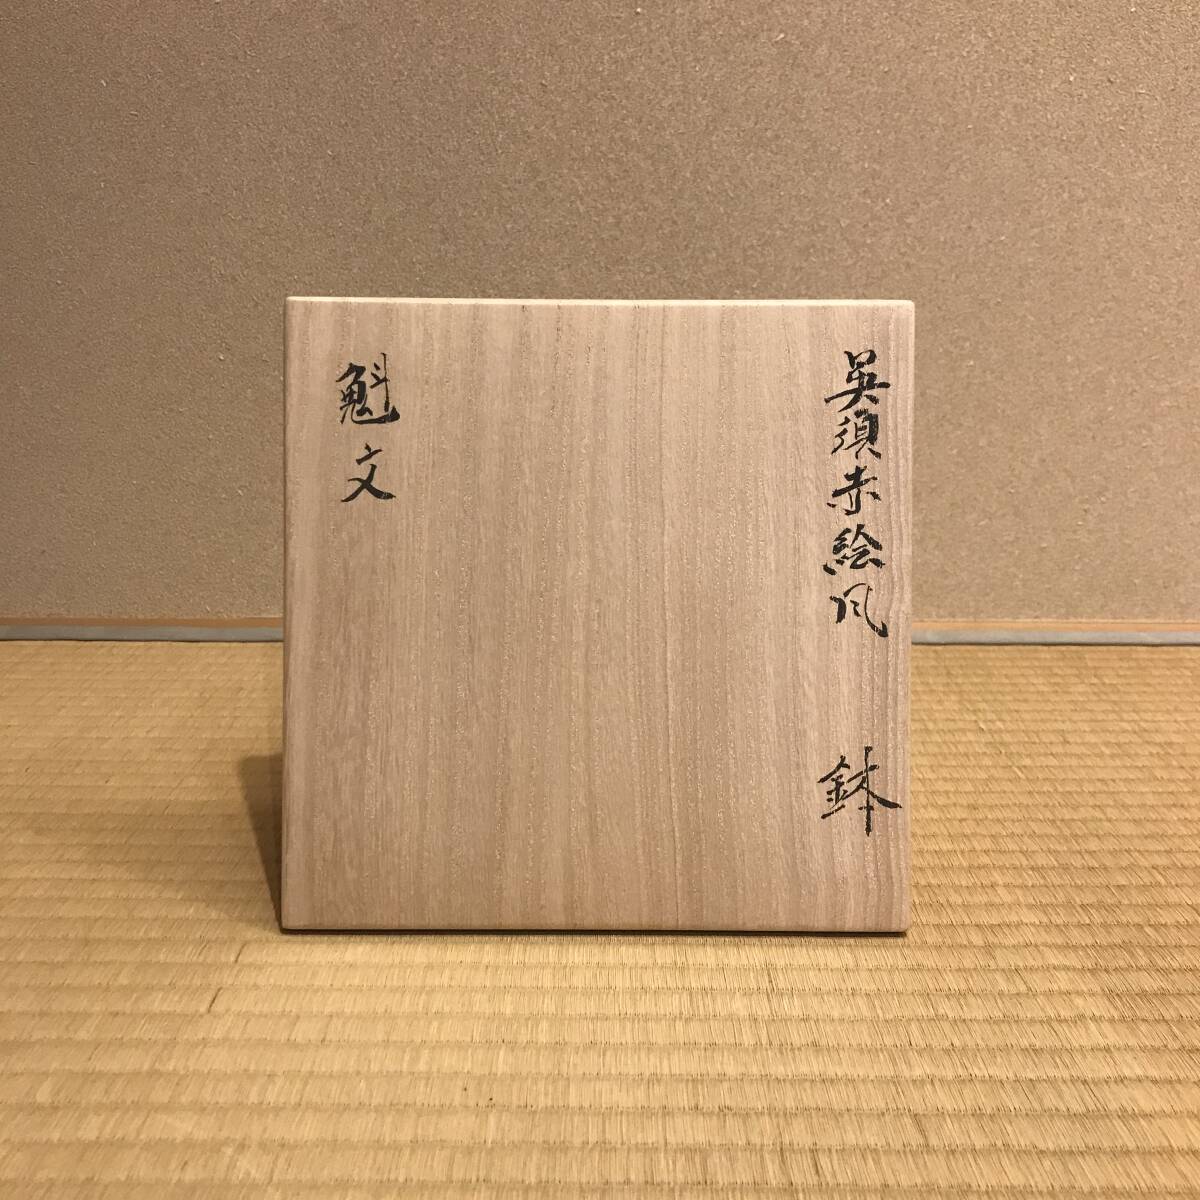 呉須赤絵風 鉢
魁文